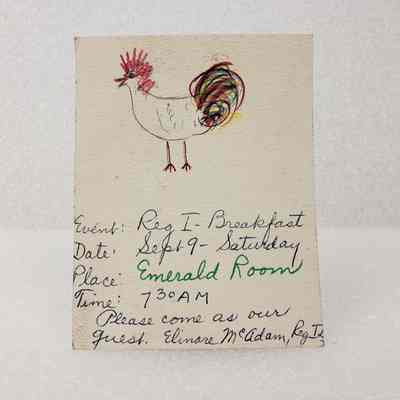 Event: Reg I - Breakfast
Date: Sept 9 - Saturday
Place: Emerald Room
Time: 730 AM
Please come as our
guest. Elinore McAdam, Reg I